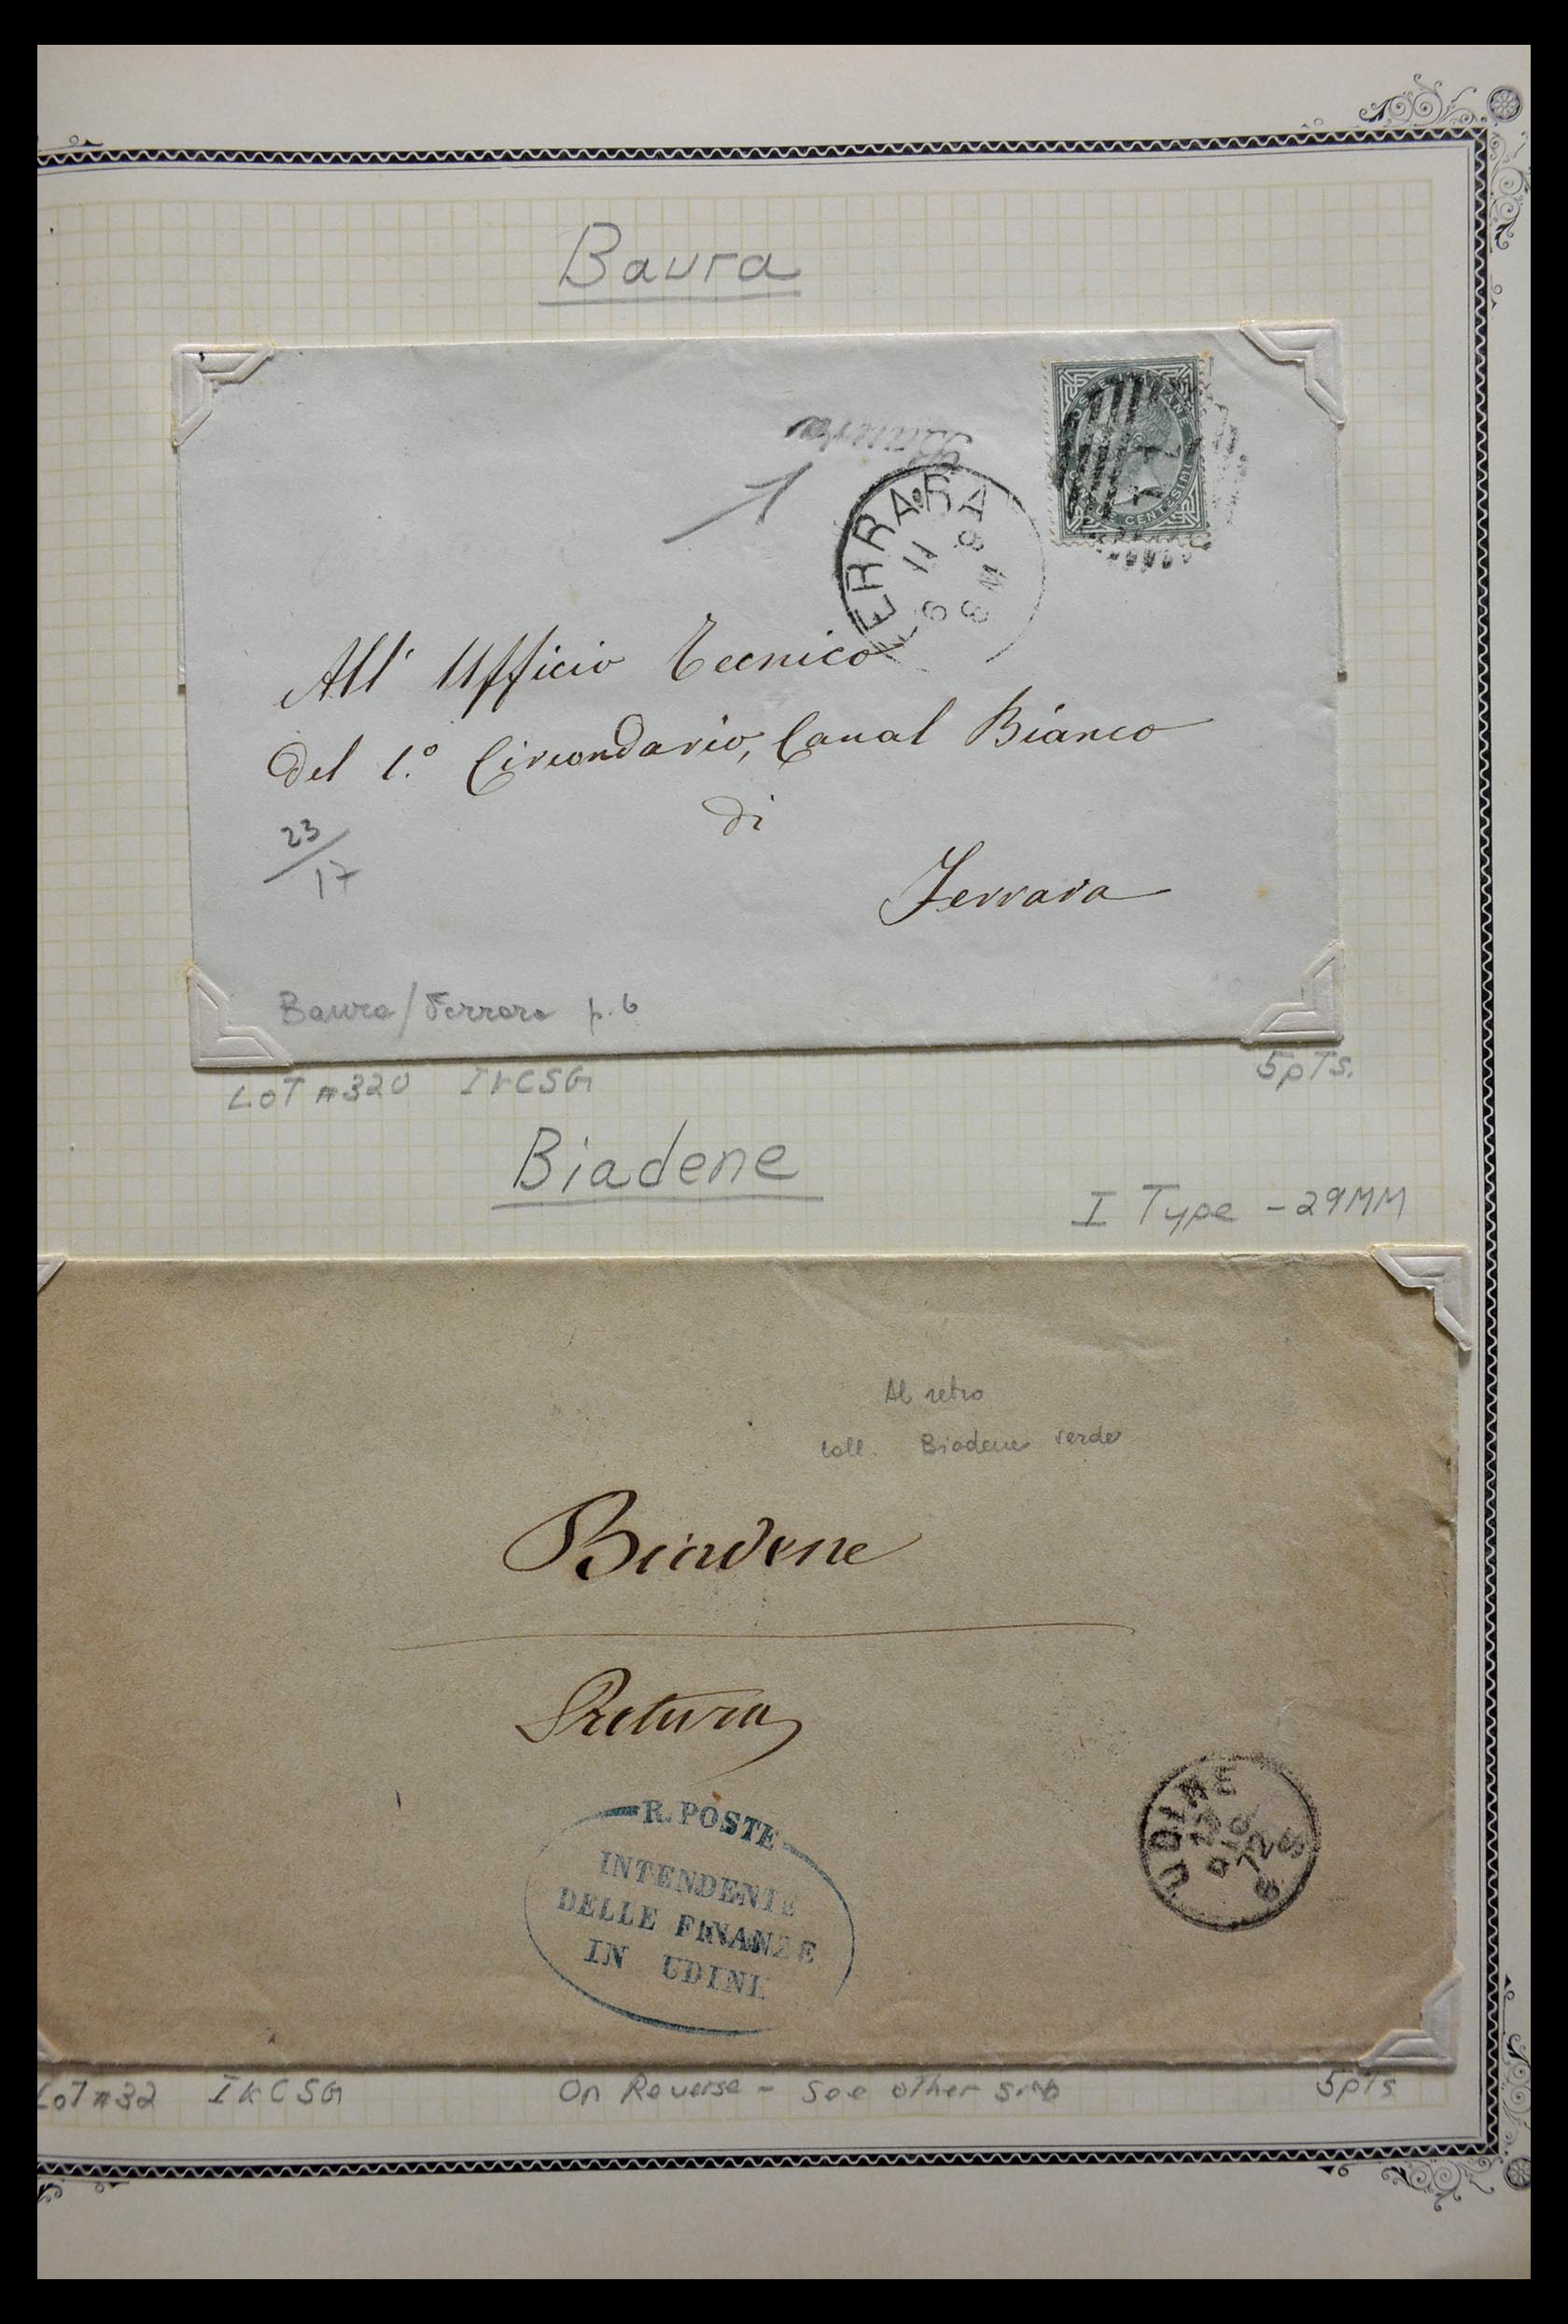 Baura
Baura
POSTE ITALIANE
CENTESIMI
FERRARA
11
All' Ufficio Tecnico
Del 1.º Circondario, Canal Bianco
di
Ferrara
23/17
Baura/Ferrara p. 6
LOT #320 IKCSG
5pTs.
Biadene
I Type - 29MM
Al retro
coll. Biadene verde
Biadene
Pretura
R. POSTE
INTENDENTE
DELLE FINANZE
IN UDINE
UDINE
13
DIC
72
6 S
LOT #32 IKCSG
On Reverse - See other side
5pTs